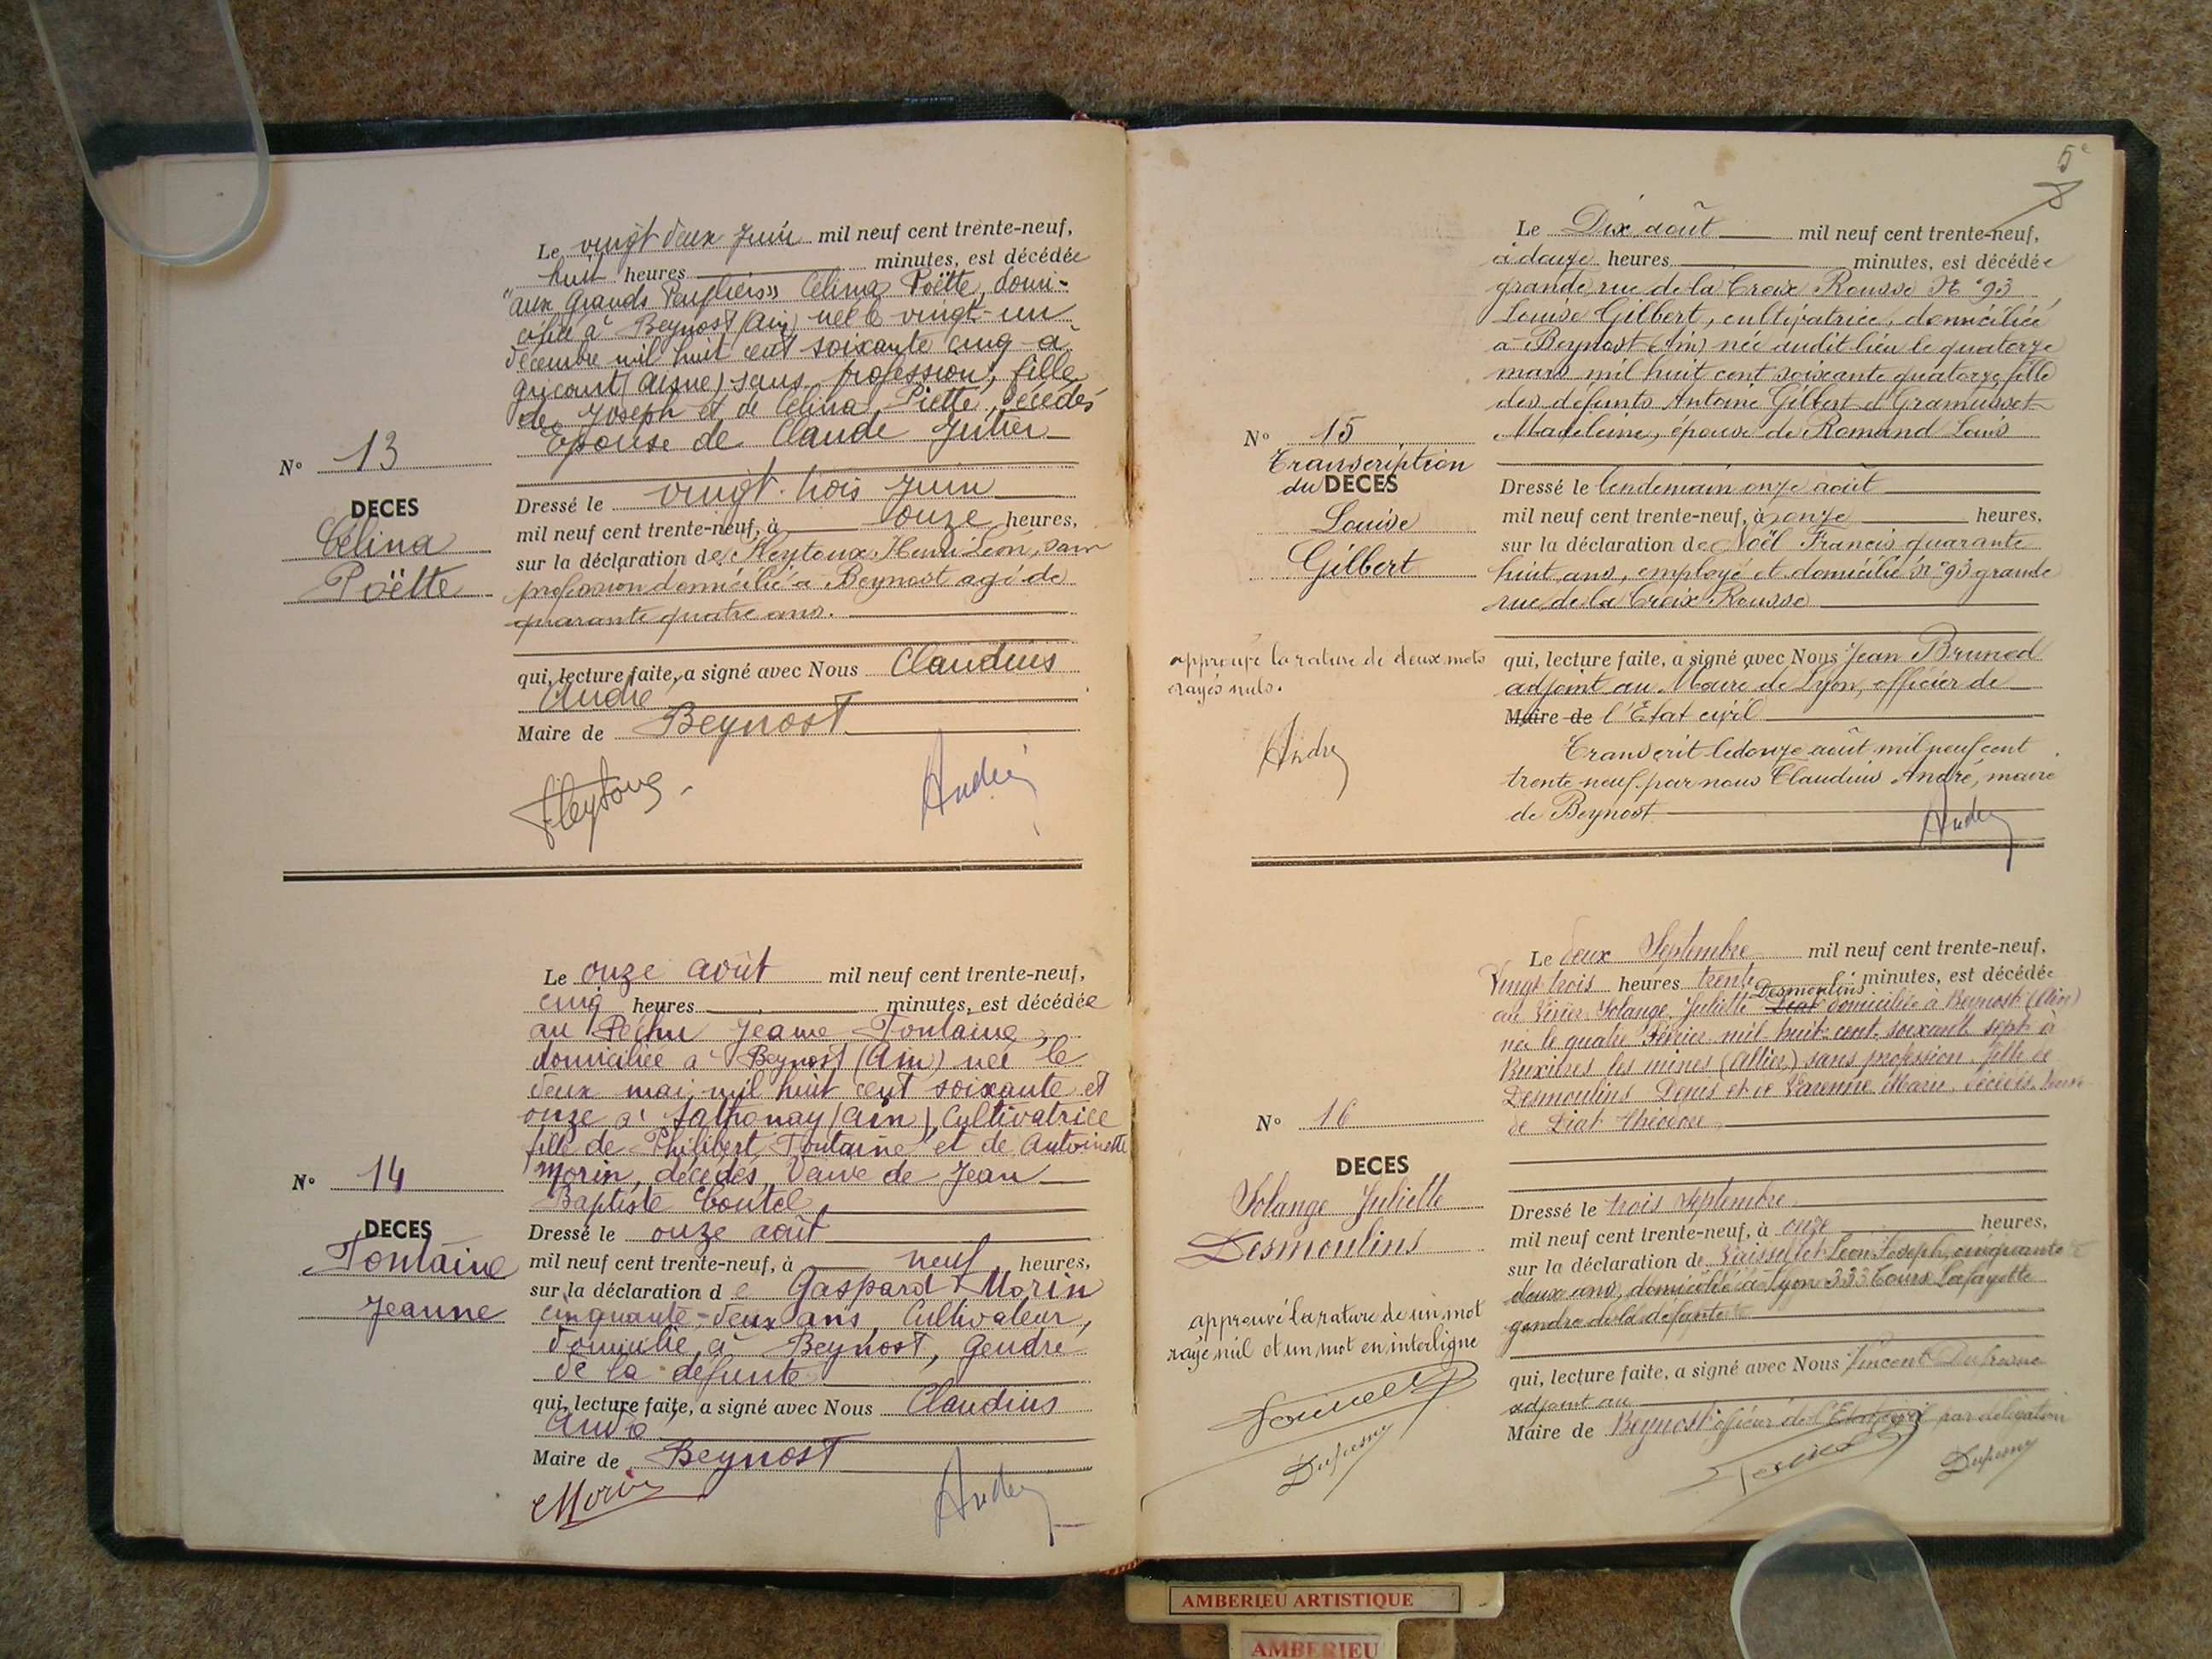 Le vingt deux Juin mil neuf cent trente-neuf,
huit heures minutes, est décédée
"aux Grands Peupliers" Célina Poëtte, domi-
ciliée à Beynost (Ain) née le vingt-un
décembre mil huit cent soixante cinq à
Gricourt (Aisne) sans profession, fille
de Joseph et de Célina Piette, décédés
Epouse de Claude Jutier
N° 13
DECES
Célina
Poëtte
Dressé le vingt-trois Juin
mil neuf cent trente-neuf, à onze heures,
sur la déclaration de Heytoux Henri Léon, sans
profession domicilié à Beynost agé de
quarante quatre ans.
qui, lecture faite, a signé avec Nous Claudius
André
Maire de Beynost
André
Le onze août mil neuf cent trente-neuf,
cinq heures minutes, est décédée
au Péchu Jeanne Fontaine,
domiciliée à Beynost (Ain) née le
deux mai mil huit cent soixante et
onze à Sathonay (Ain), Cultivatrice
fille de Philibert Fontaine et de Antoinette
Morin, décédés, Veuve de Jean
Baptiste Coutel
N° 14
DECES
Fontaine
Jeanne
Dressé le onze août
mil neuf cent trente-neuf, à neuf heures,
sur la déclaration de Gaspard Morin
cinquante-deux ans, Cultivateur,
domicilié à Beynost, gendre
de la défunte
qui, lecture faite, a signé avec Nous Claudius
André
Maire de Beynost
Morin André
5e
Le Dix août mil neuf cent trente-neuf,
à douze heures minutes, est décédée
grande rue de la Croix Rousse N° 93,
Louise Gilbert, cultivatrice, domiciliée
à Beynost (Ain) née audit lieu le quatorze
mars mil huit cent soixante quatorze fille
des défunts Antoine Gilbert et Gramusset
Madeleine, épouse de Romand Louis
N° 15
Transcription
du DECES
Louise
Gilbert
Dressé le lendemain onze août
mil neuf cent trente-neuf, à onze heures,
sur la déclaration de Noël Francis quarante
huit ans, employé et domicilié N° 93 grande
rue de la Croix Rousse
approuvé la rature de deux mots
rayés nuls.
André
qui, lecture faite, a signé avec Nous Jean Brunod
adjoint au Maire de Lyon, officier de
Maire de l'Etat civil
Transcrit le douze août mil neuf cent
trente neuf par nous Claudius André, maire
de Beynost
André
Le deux Septembre mil neuf cent trente-neuf,
Vingt trois heures trente minutes, est décédée
Desmoulins
au Solange Juliette Diat domiciliée à Beynost (Ain)
née le quatre Février mil huit cent soixante sept à
Buxières les mines (Allier) sans profession fille de
Desmoulins Denis et de Varenne Marie, décédés, Veuve
de Diat Théodore
N° 16
DECES
Solange Juliette
Desmoulins
Dressé le trois Septembre
mil neuf cent trente-neuf, à onze heures,
sur la déclaration de Léon Joseph, cinquante
deux ans, domicilié à Lyon 333 Cours Lafayette
gendre de la défunte
approuvé la rature de un mot
rayé nul et un mot en interligne
Dufresne
qui, lecture faite, a signé avec Nous Vincent Dufresne
adjoint au
Maire de Beynost officier de l'Etat civil par délégation
Dufresne
AMBERIEU ARTISTIQUE
AMBERIEU